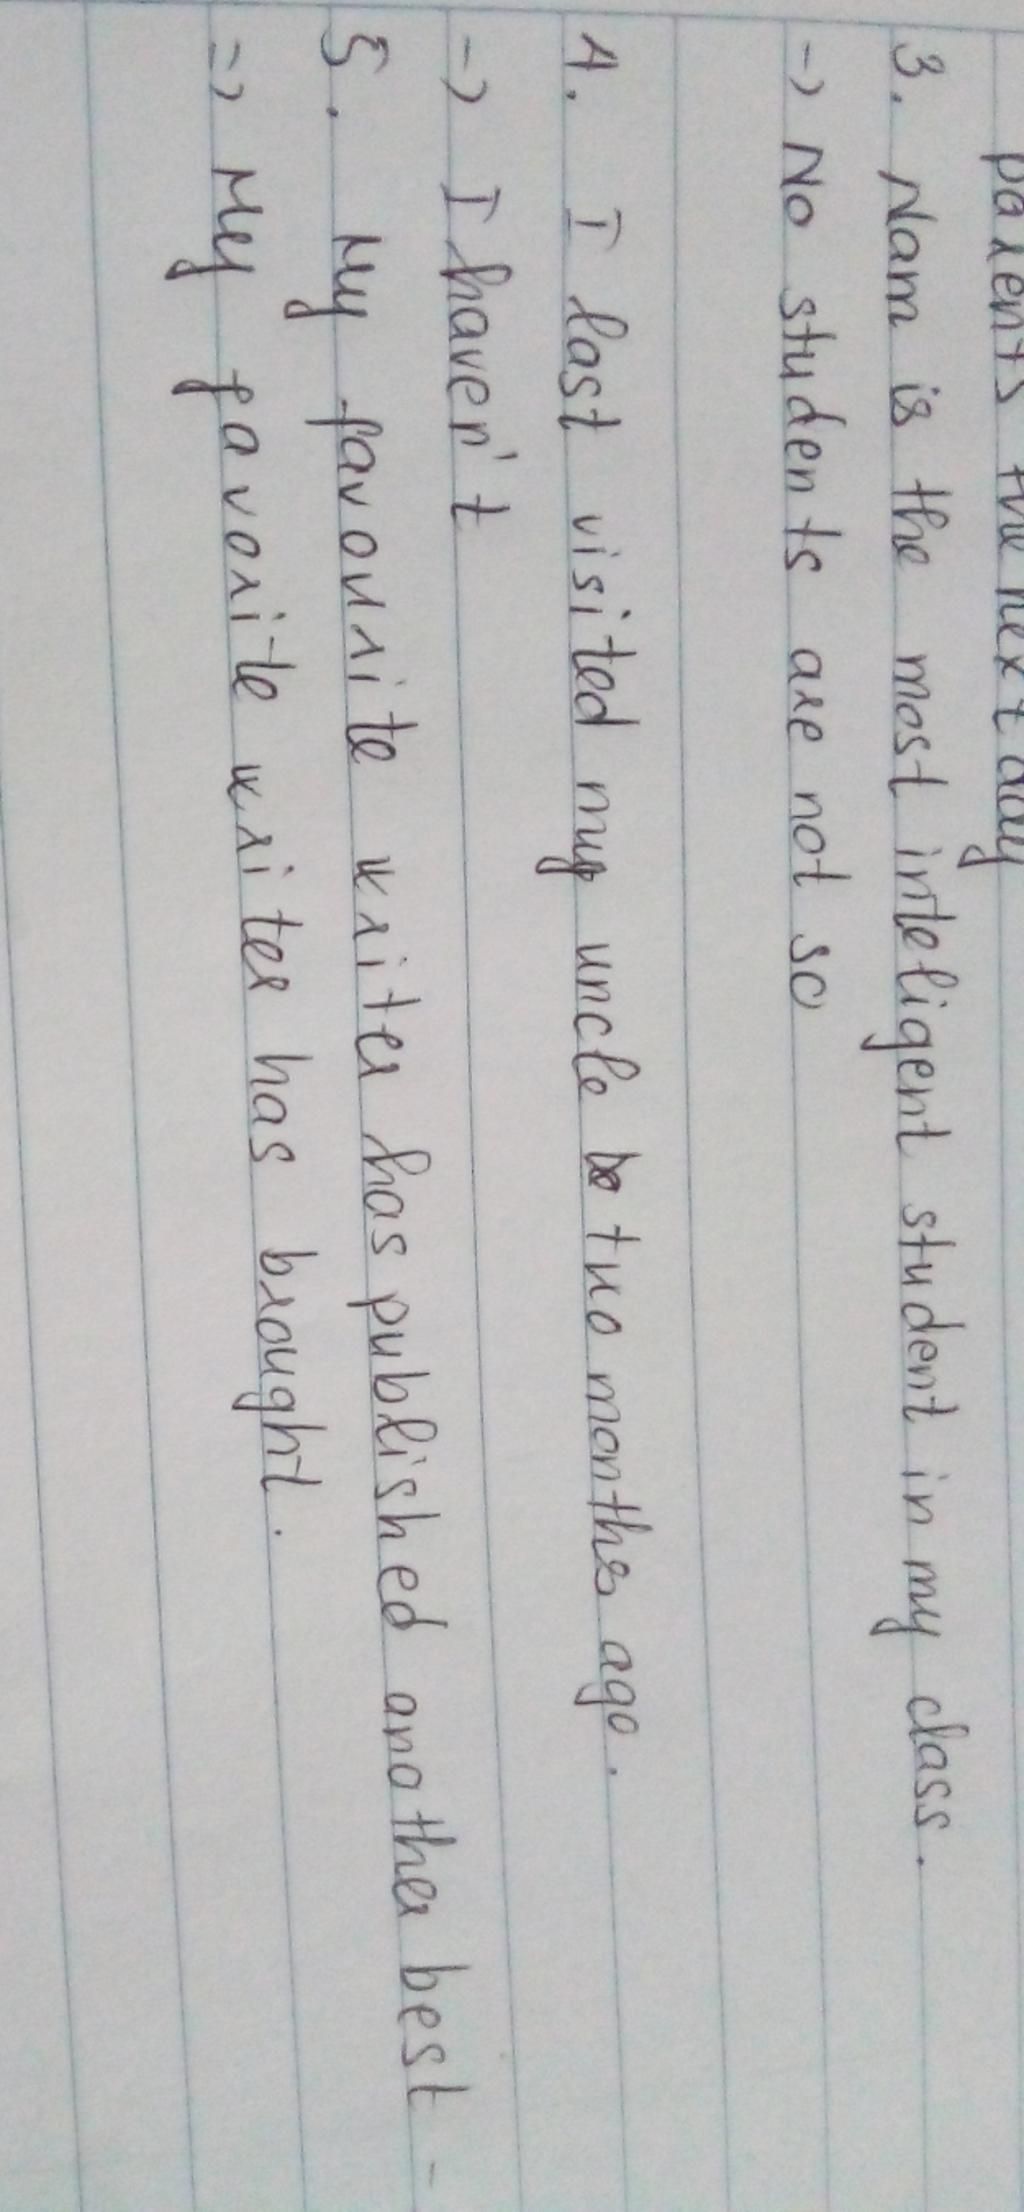 parents the next day
3. Nam is the most inteligent student in my class.
-> No students are not so
4. I last visited my uncle two months ago.
-> I haven't
5. My favourite writer has published another best -
=> My favorite writer has brought.